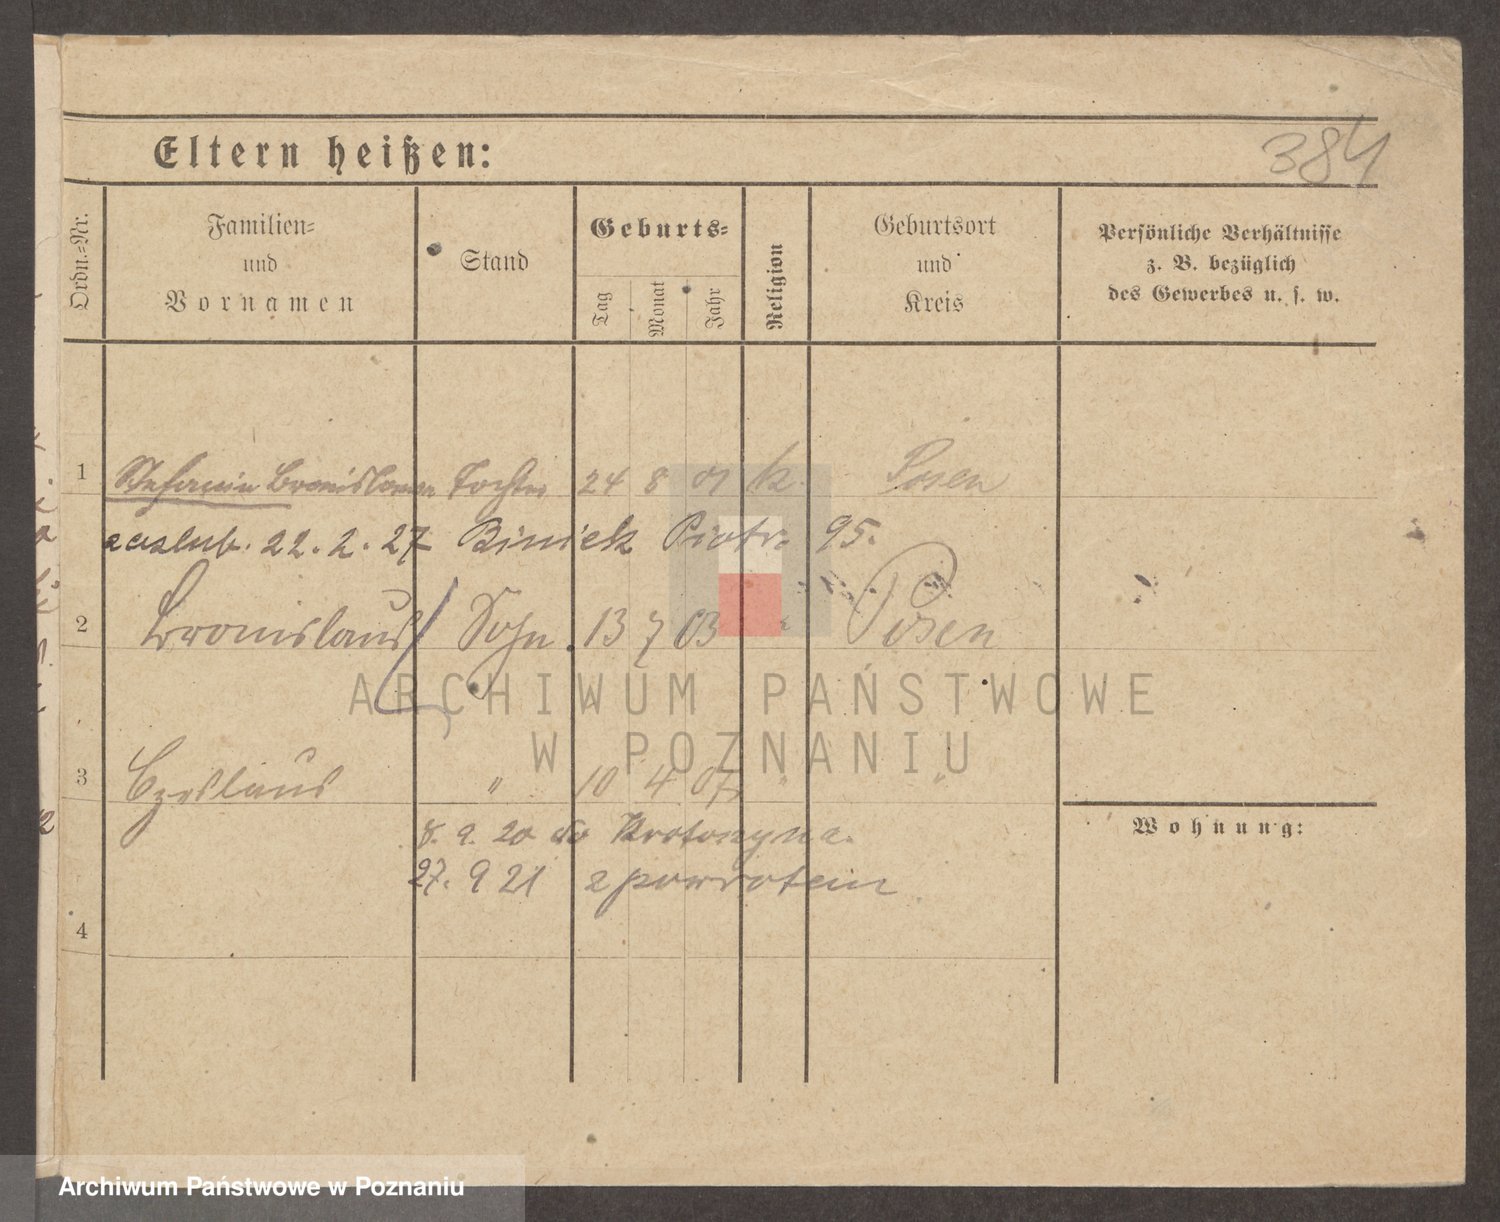 Eltern heißen:
384
Ordn.-Nr.
Familien-
und
Vornamen
Stand
Geburts-
Tag
Monat
Jahr
Religion
Geburtsort
und
Kreis
Persönliche Verhältnisse
z. B. bezüglich
des Gewerbes u. s. w.
1 Stefania Bronislawa Tochter 24 8 01 k. Posen
zaślub. 22. 2. 27 Biniek Piotr 95.
2 Bronislaus Sohn 13 7 03 " Posen
3 Czeslaus " 10 4 07 " "
8. 9. 20 do Krotoszyna.
27. 9 21 z powrotem
Wohnung:
4
ARCHIWUM PAŃSTWOWE
W POZNANIU
Archiwum Państwowe w Poznaniu